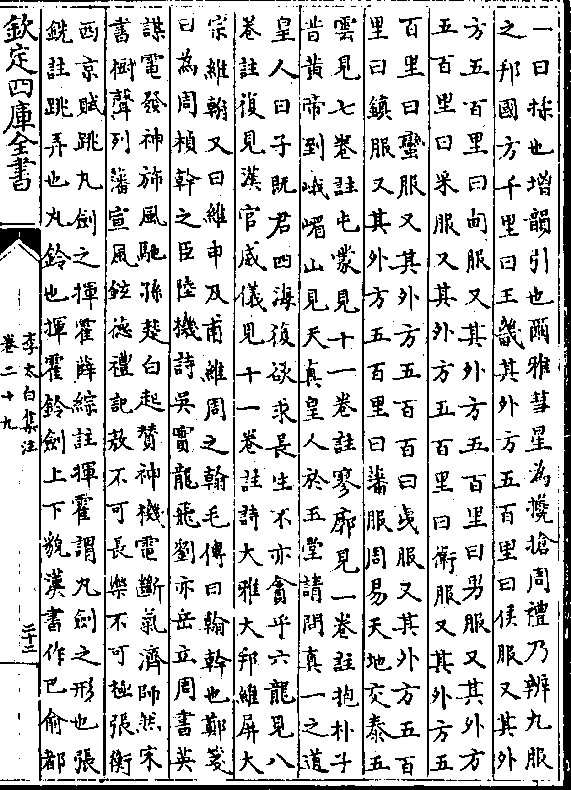 一曰採也增韻引也爾雅彗星為攙搶周禮乃辨九服
之邦國方千里曰王畿其外方五百里曰侯服又其外
方五百里曰甸服又其外方五百里曰男服又其外方
五百里曰采服又其外方五百里曰衛服又其外方五
百里曰蠻服又其外方五百百曰夷服又其外方五百
里曰鎮服又其外方五百里曰蕃服周易天地交泰五
雲見七卷註屯蒙見十一卷註寥廓見一卷註抱朴子
昔黃帝到峨嵋山見天真皇人於玉堂請問真一之道
皇人曰子既君四海復欲求長生不亦貪乎六龍見八
卷註復見漢官威儀見十一卷註詩大雅大邦維屏大
宗維翰又曰維申及甫維周之翰毛傳曰翰幹也鄭箋
曰為周楨幹之臣陸機詩吳實龍飛劉亦岳立周書英
謀電發神旆風馳孫楚白起贊神機電斷氣濟師然宋
書樹聲列藩宣風鉉德禮記敖不可長樂不可極張衡
西京賦跳丸劍之揮霍薛綜註揮霍謂丸劍之形也張
銑註跳弄也丸鈴也揮霍鈴劍上下貌漢書作巴俞都
欽定四庫全書
李太白集注
卷二十九
二十二